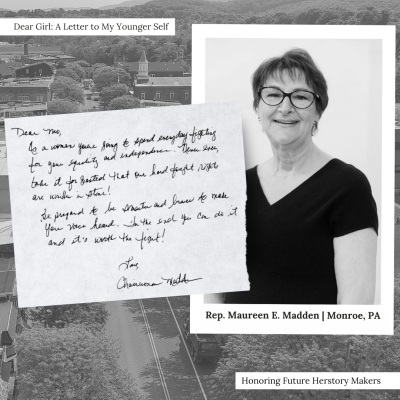 Dear Girl: A Letter to My Younger Self
Dear Me,
As a woman you're going to spend everyday fighting
for your equality and independence. Never ever,
take it for granted that our hard fought rights
are written in stone!
Be prepared to be smarter and braver to make
your voice heard. In the end you can do it
and it's worth the fight!
Love,
Madden
Rep. Maureen E. Madden | Monroe, PA
Honoring Future Herstory Makers